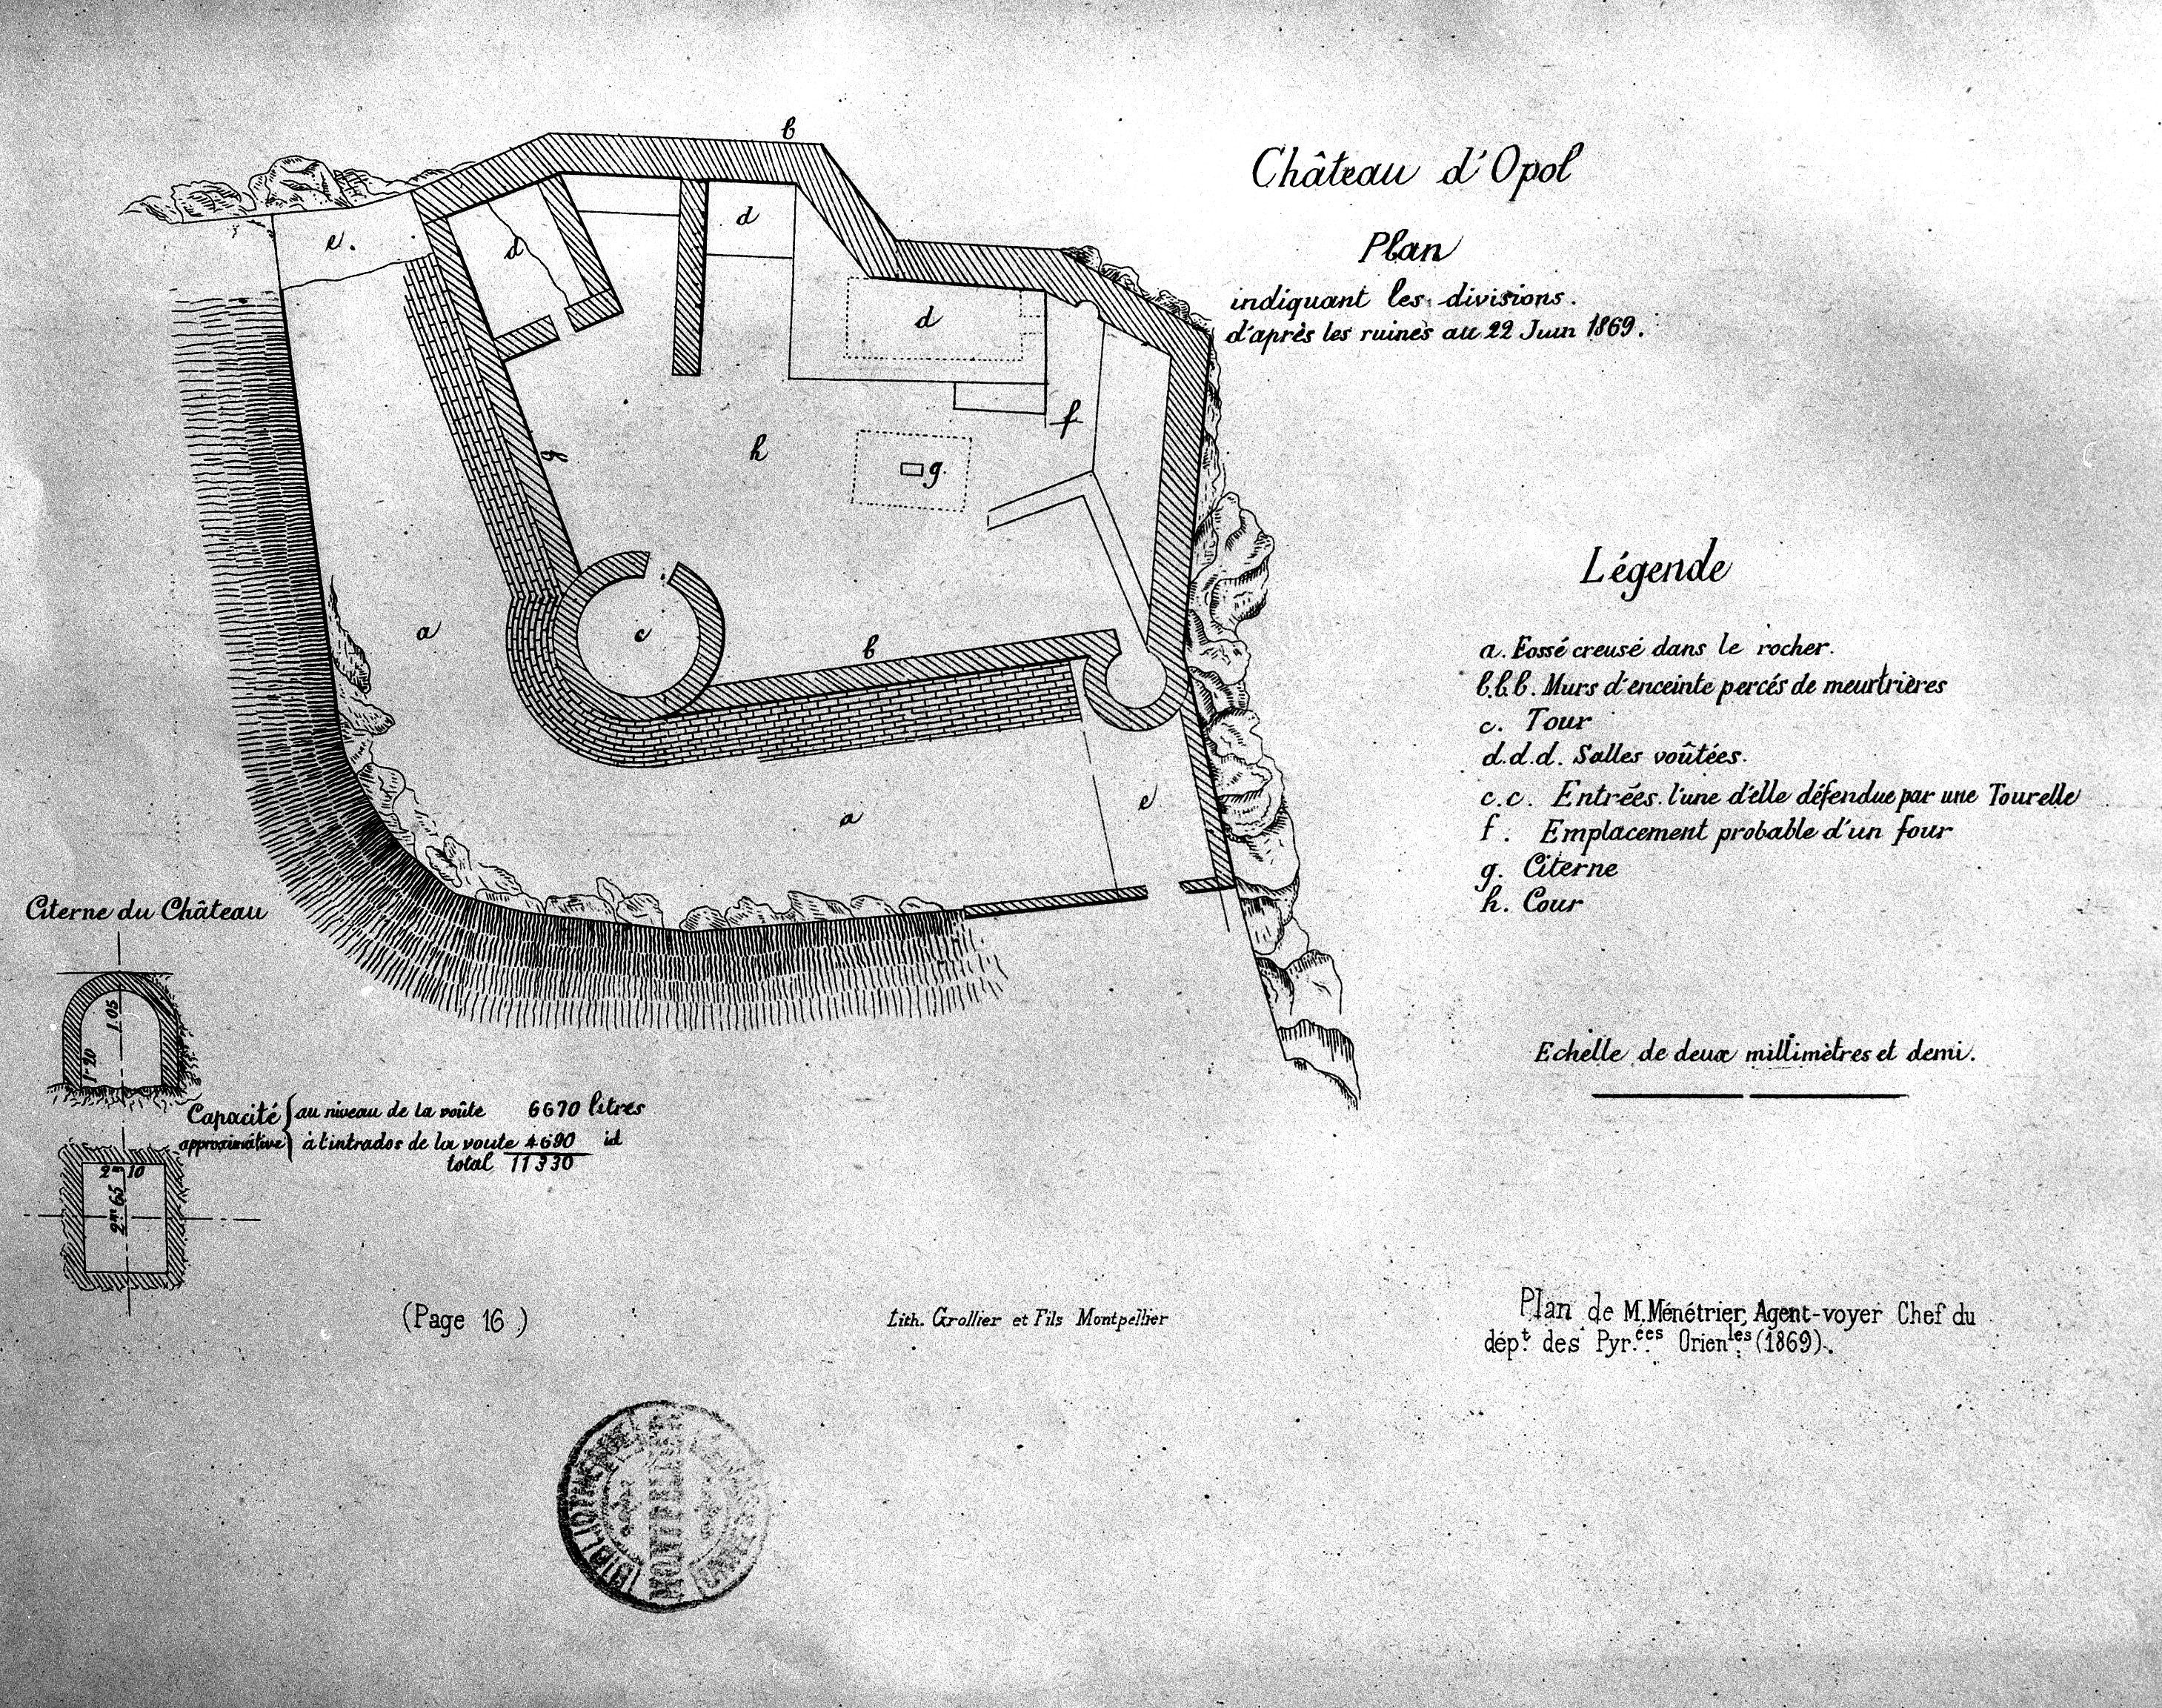 Château d'Opol
Plan
indiquant les divisions.
d'après les ruines au 22 Juin 1869.
b
e.
d
d
d
f
h
g
b
g.
c
a
b
e
a
Légende
a. Fossé creusé dans le rocher.
b.b.b. Murs d'enceinte percés de meurtrières
c. Tour
d.d.d. Salles voûtées.
c.c. Entrées. l'une d'elle défendue par une Tourelle
f. Emplacement probable d'un four
g. Citerne
h. Cour
Echelle de deux millimètres et demi.
Citerne du Château
1.05
1.20
Capacité approximative
au niveau de la voûte 6670 litres
à l'intrados de la voute 4690 id
total 11330
2m 10
2m 65
(Page 16)
Lith. Grollier et Fils Montpellier
Plan de M. Ménétrier, Agent-voyer Chef du
dépt. des Pyr.ées Orienles. (1869).
MONTPELLIER